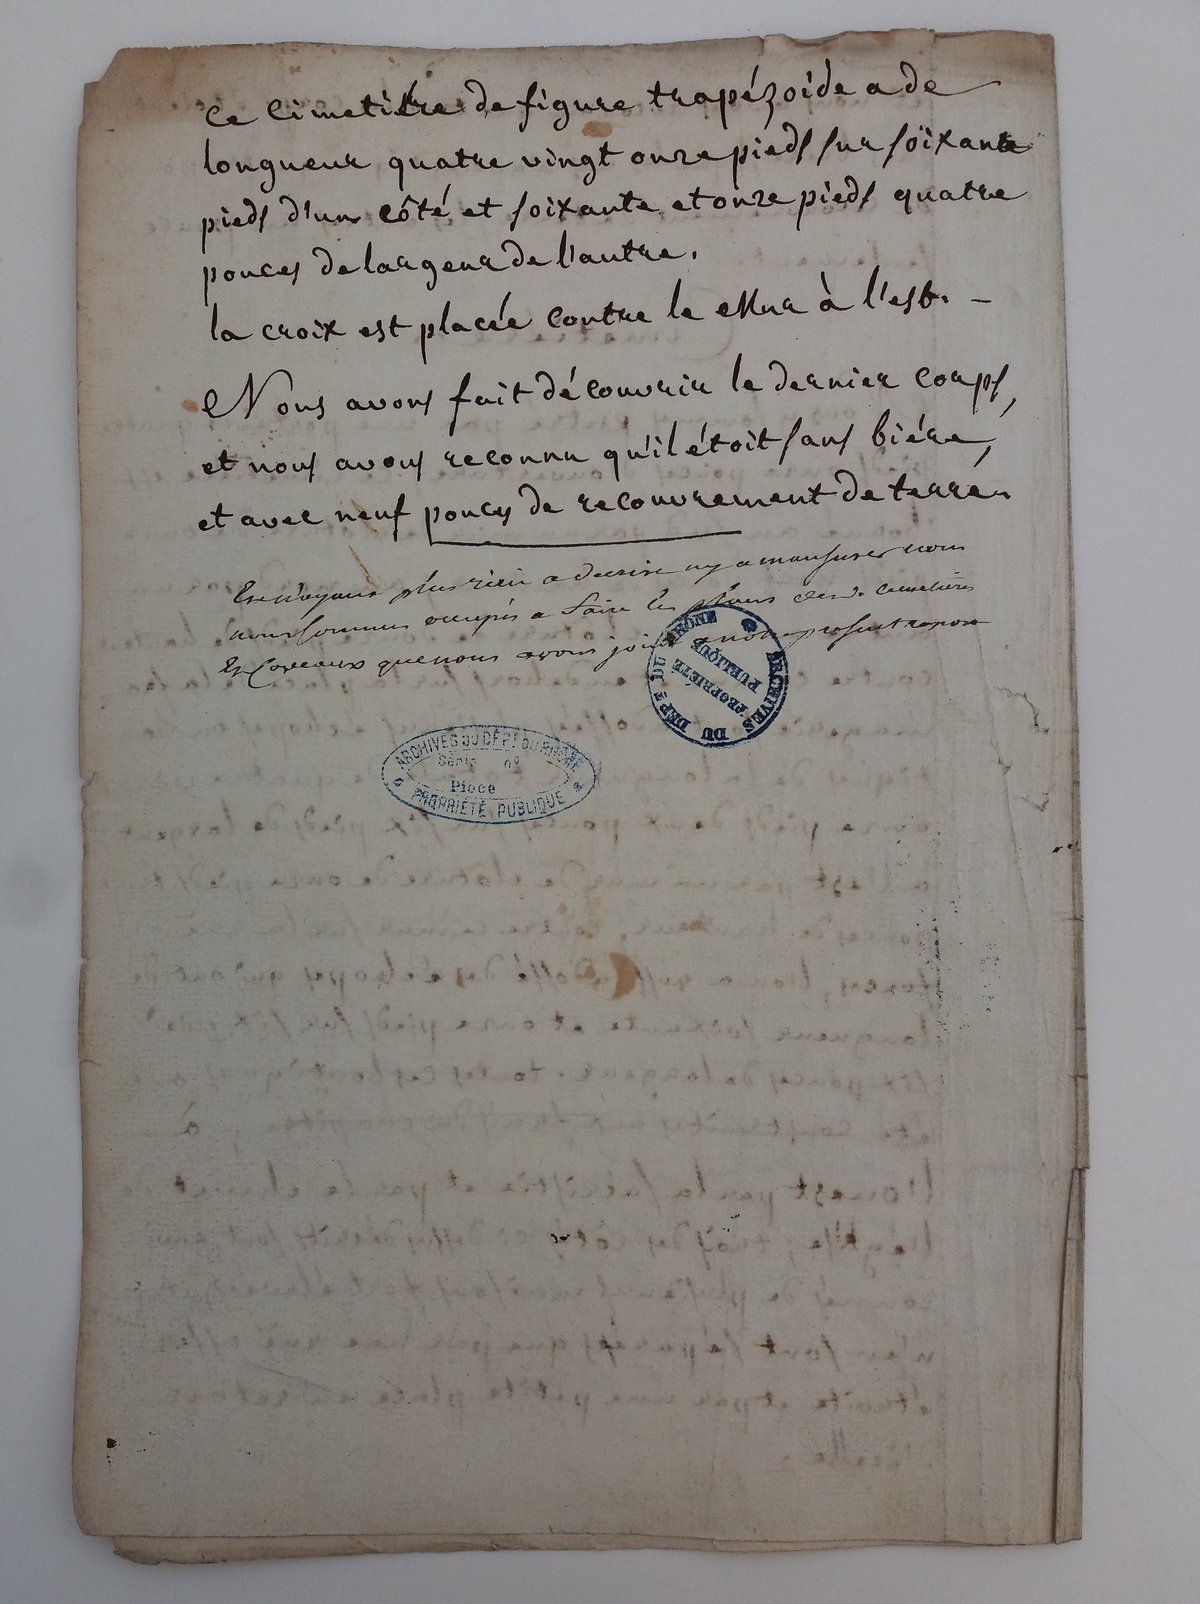 Ce Cimetiére de figure trapézoïde a de
longueur quatre vingt onze pieds sur soïxante
pieds d'un côté et soixante et onze pieds quatre
pouces de largeur de l'autre.
la croix est placée contre le Mur à l'est. –
Nous avons fait découvrir le dernier corps,
et nous avons reconnu qu'il étoit sans biére,
et avec neuf pouces de recouvrement de terre.
Et n'ayant plus rien a decrire ny a mansurer nous
nous sommes occupés a faire les plans des d. Cimetières
Et Caveaux que nous avons joint a notre present raport
ARCHIVES DU DEPT DU RHÔNE
PROPRIÉTÉ
PUBLIQUE
ARCHIVES DU DÉPT DU RHÔNE
Série nº
Piece
PROPRIÉTÉ PUBLIQUE